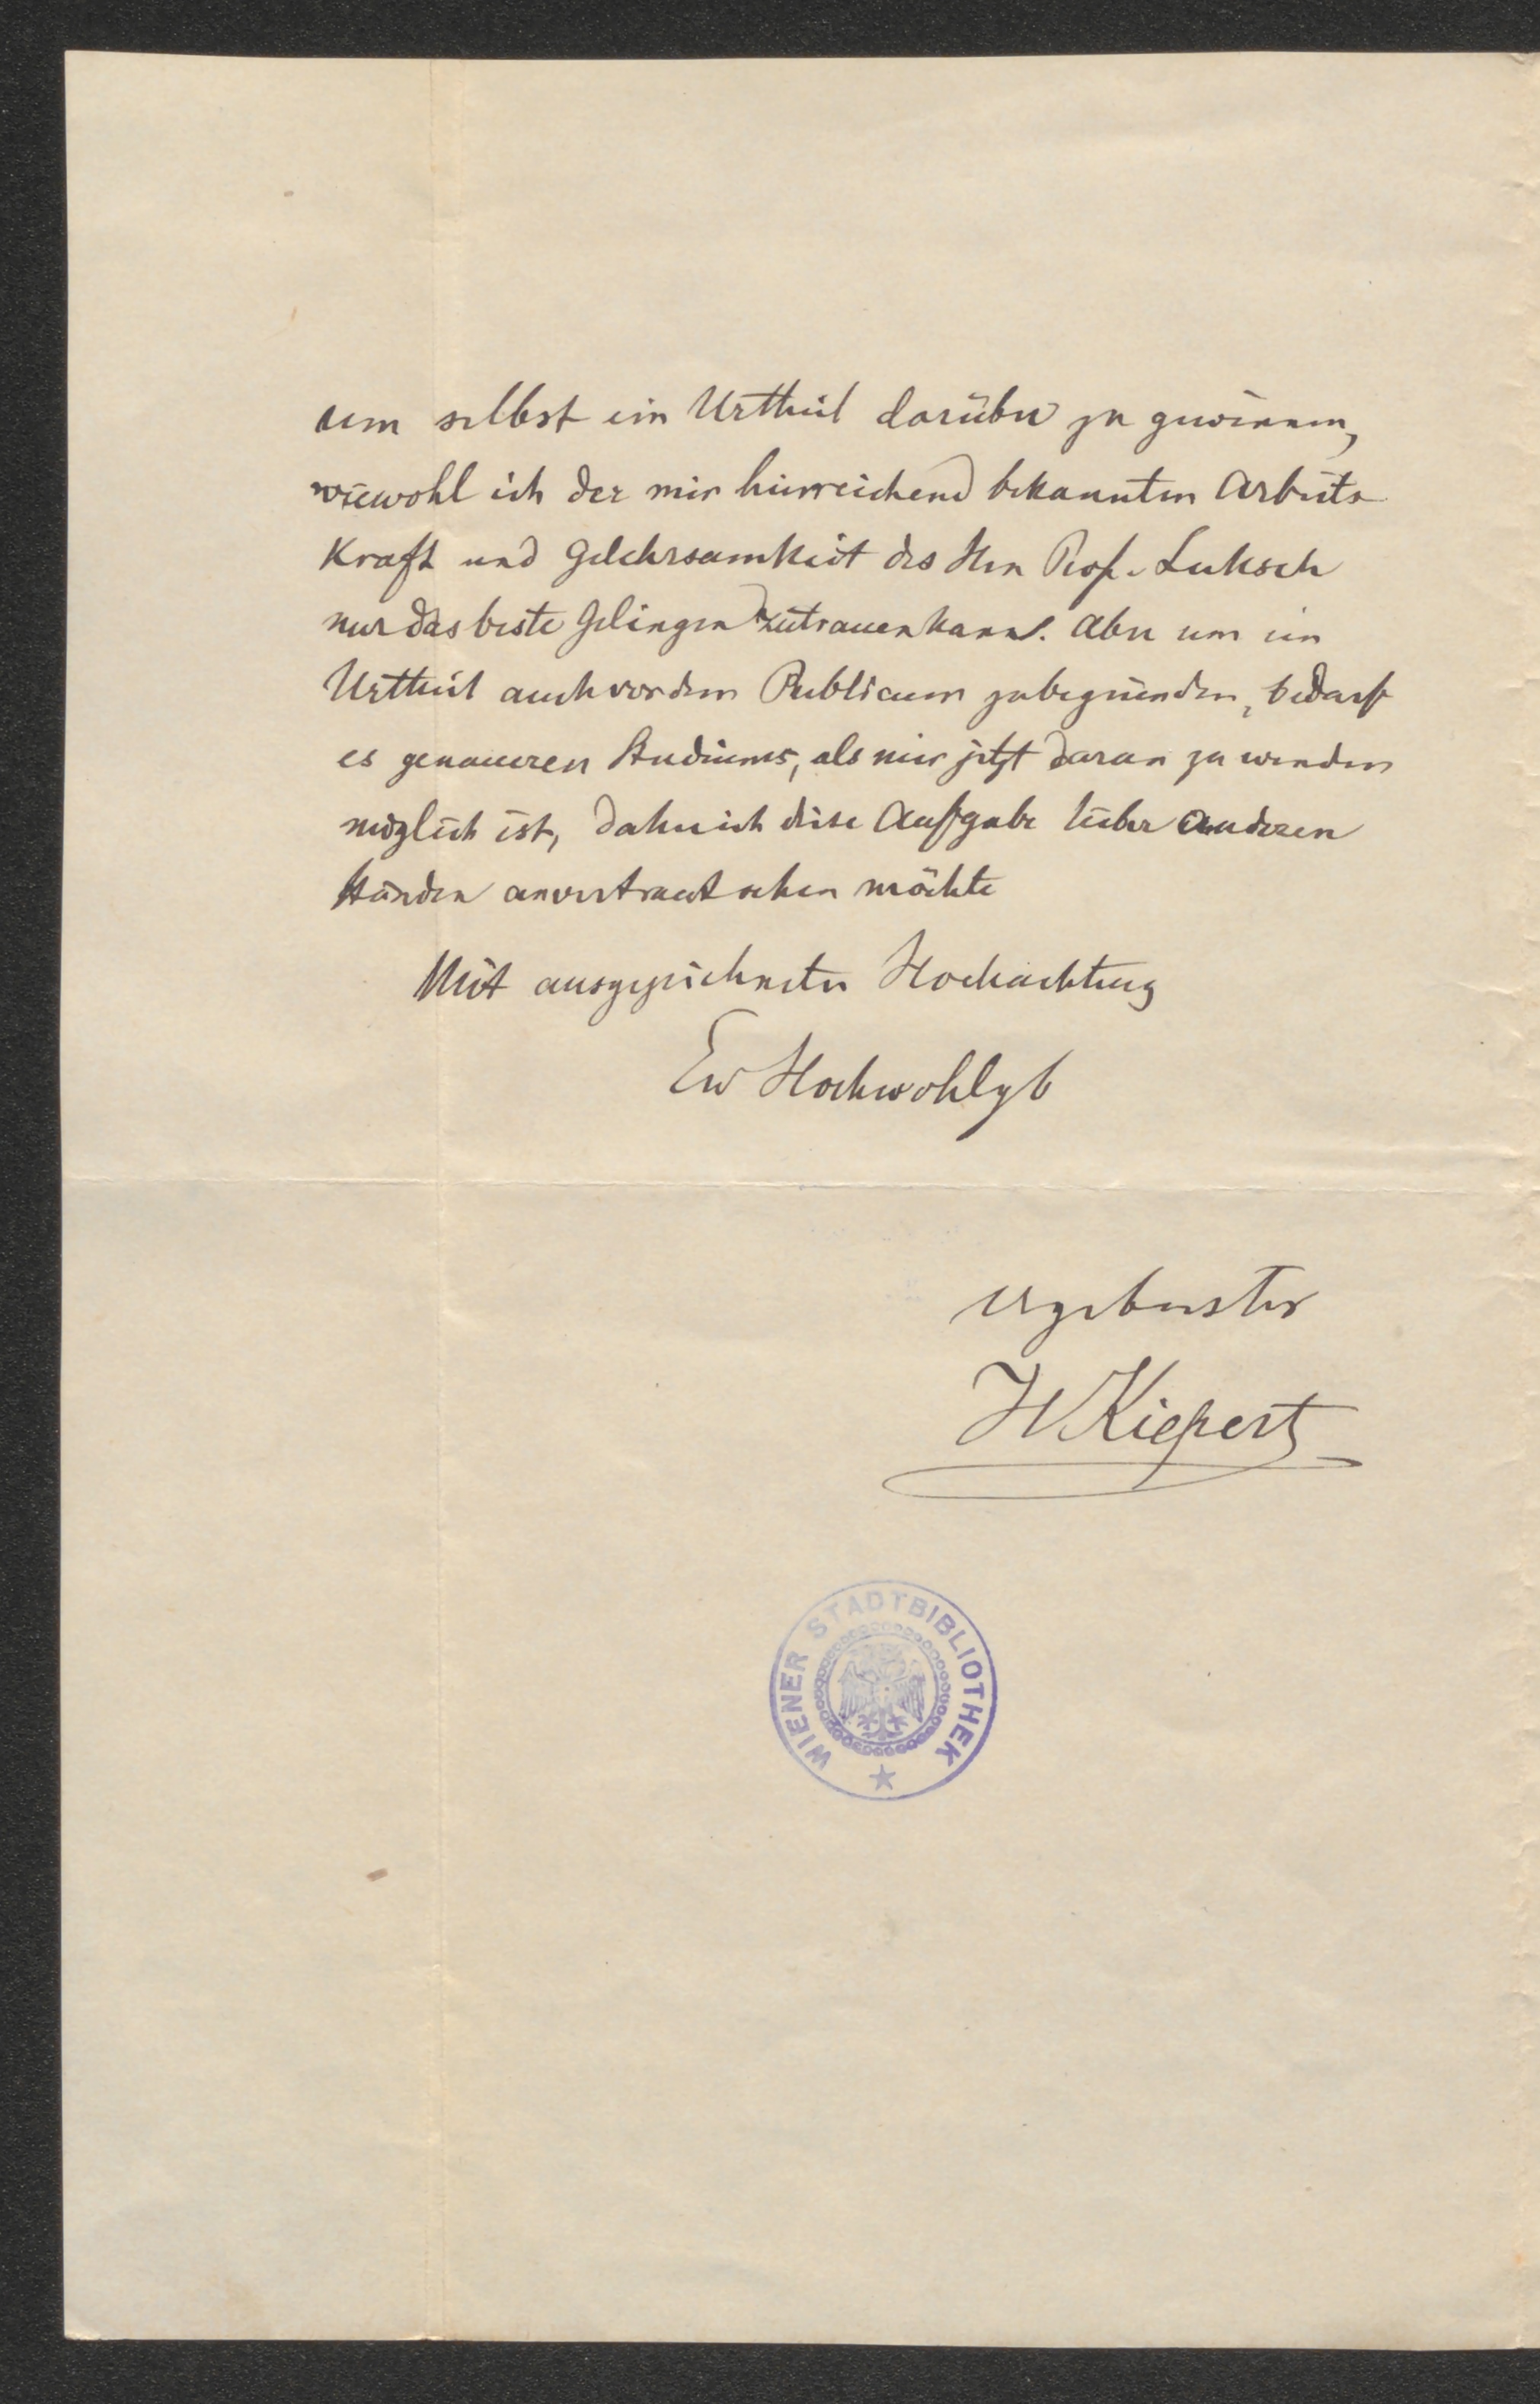 um selbst ein Urtheil darüber zu gewinnen,
wiewohl ich der mir hinreichend bekannten Arbeits
Kraft und Gelehrsamkeit des Hrn Prof. Luksch
nur das beste Gelingen zutrauen kann. Aber um ein
Urtheil auch vor dem Publicum zu begründen, bedarf
es genaueren Studiums, als mir jetzt daran zu wenden
möglich ist, daher ich diese Aufgabe lieber anderen
Händen anvertraut sehen möchte
Mit ausgezeichneter Hochachtung
Ew Hochwohlgb
ergebenster
HKiepert
WIENER STADTBIBLIOTHEK